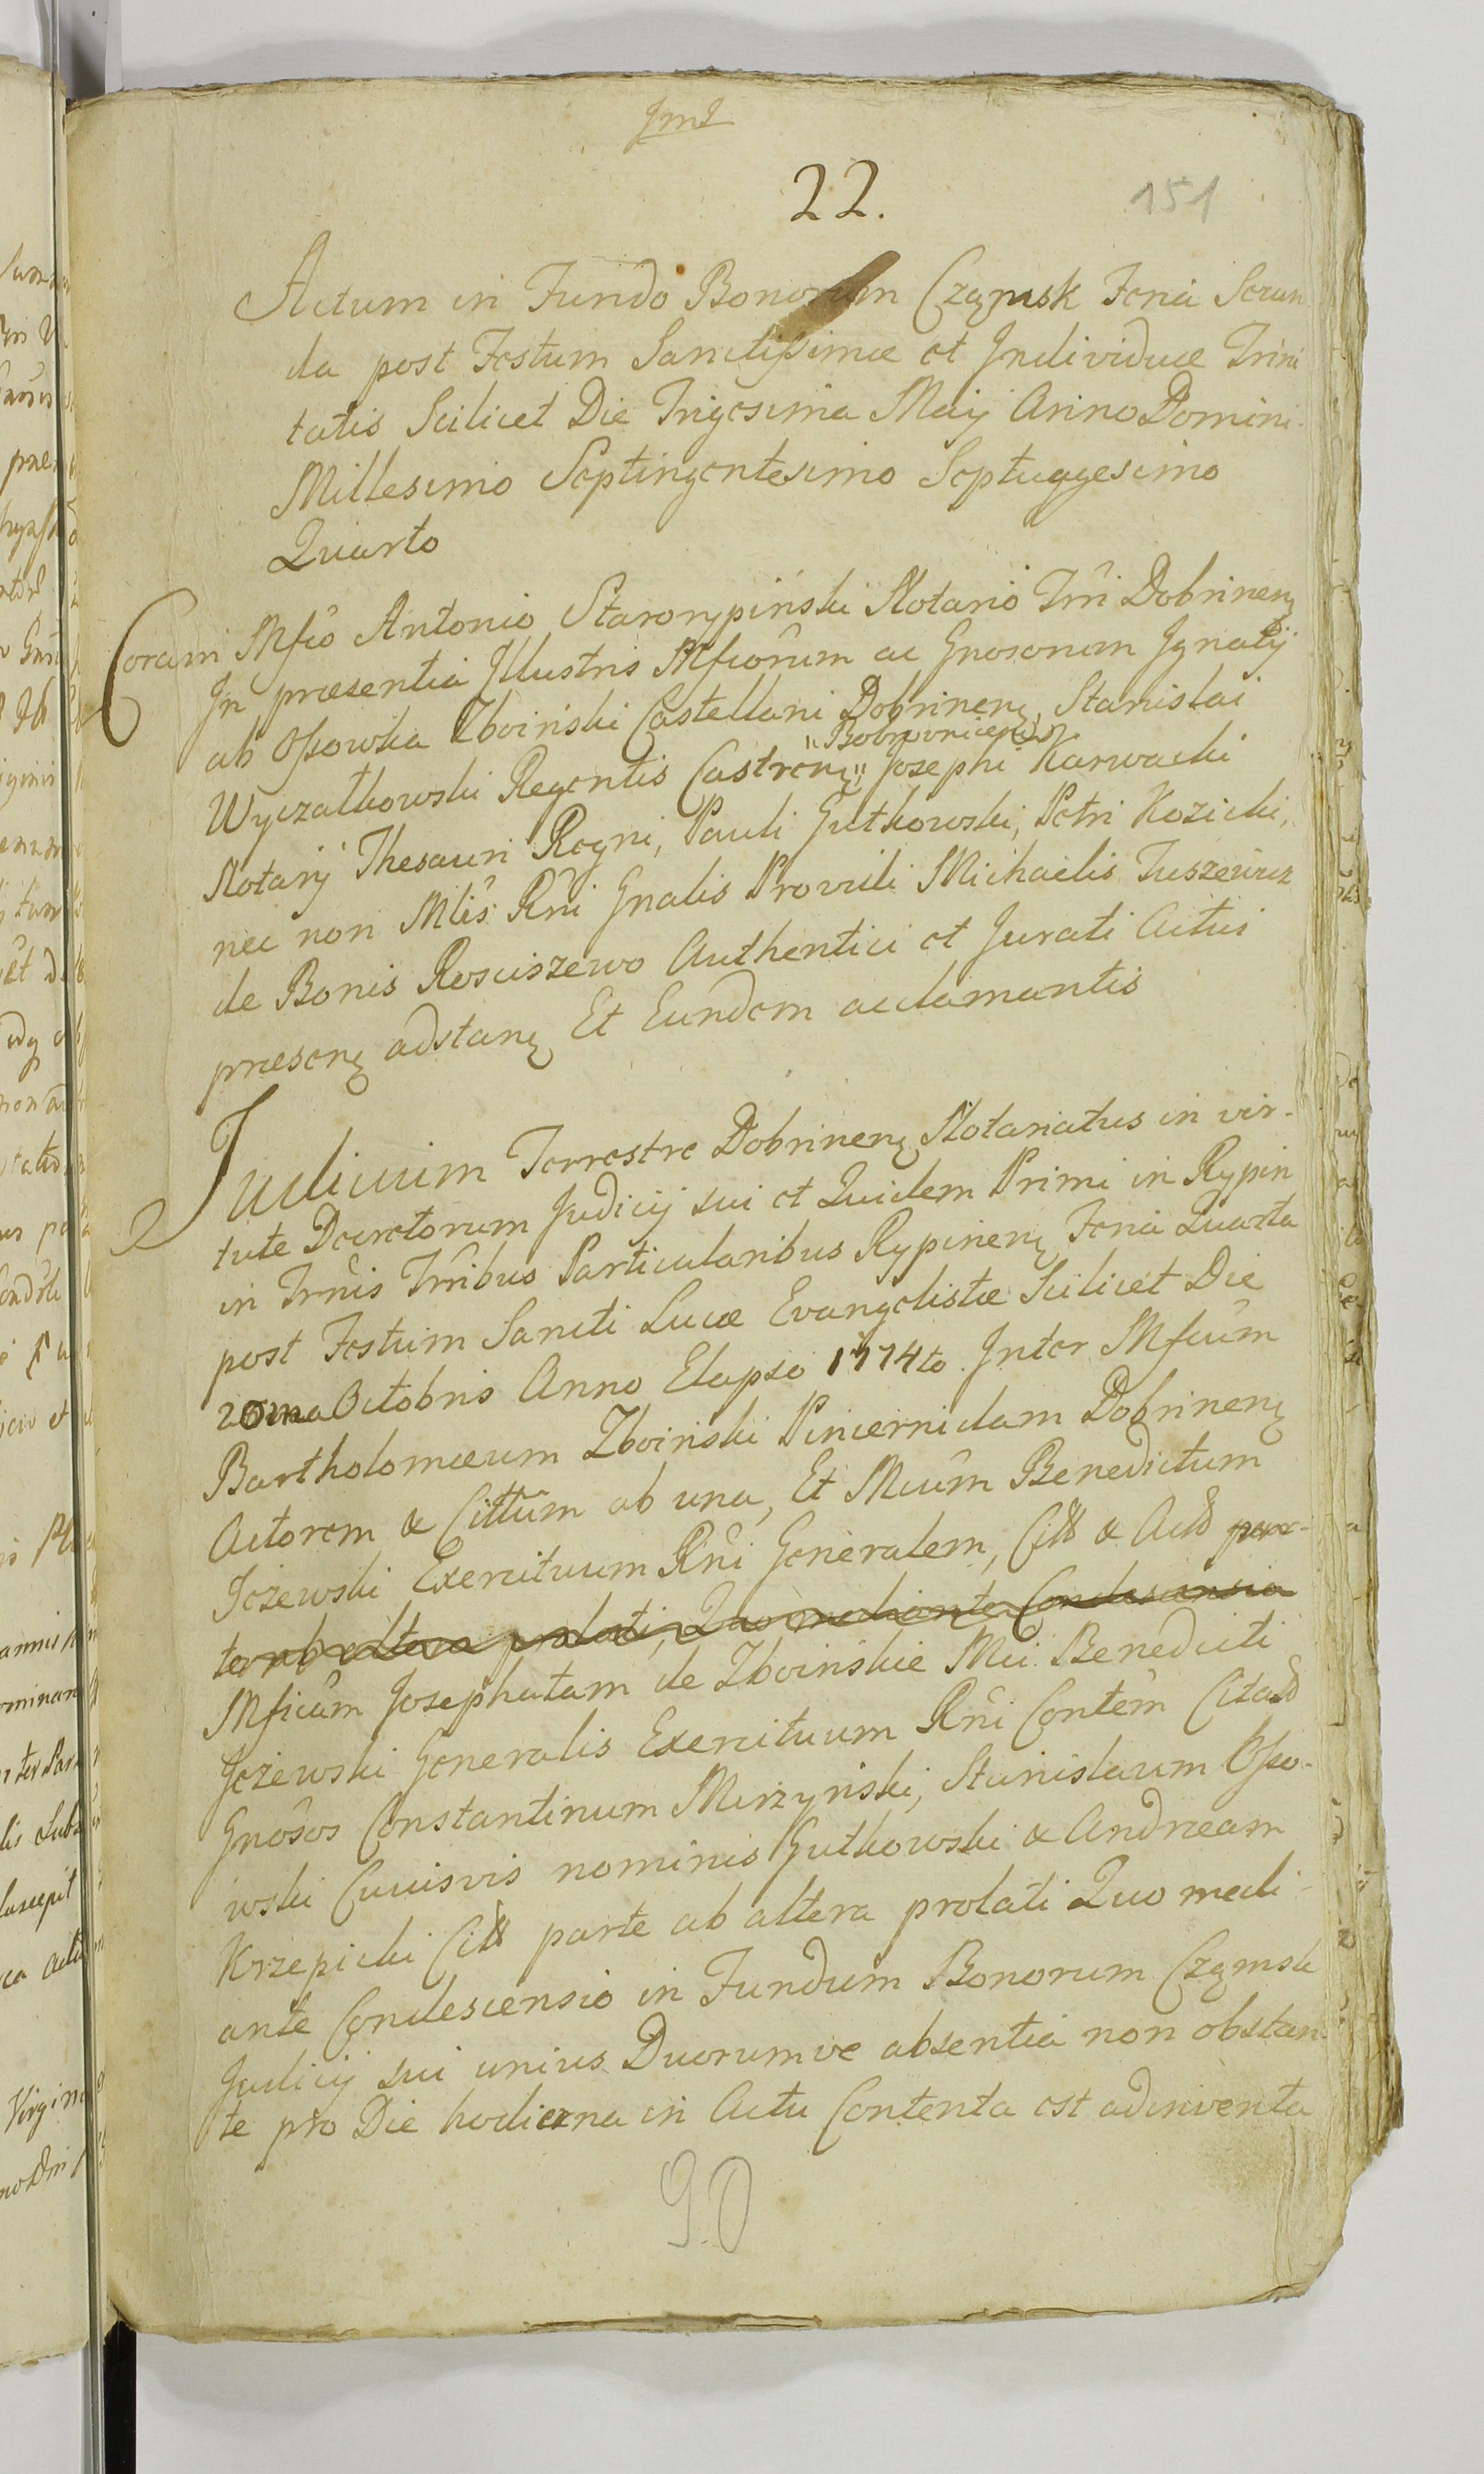 JmJ
22.
151
Actum in Fundo Bonorum Czamsk Feria Secun
da post Festum Sanctissimæ et Individuæ Trini
tatis Scilicet Die Trigesima Maij Anno Domini
Millesimo Septingentesimo Septuagesimo
Quarto
Coram Mfco Antonio Starorypiński Notario Tri Dobrinen
In præsentia Illustris Mficorum ac Gnosorum Ignatij
ab Ossowka Zboiński Castellani Dobrinen, Stanislai
"Bobrovnicen"
Wyczałkowski Regentis Castren" Josephi Karwacki
Notarij Thesauri Regni, Pauli Gutkowski, Petri Kozicki,
nec non Mlis Rni Gnalis Providi Michaelis Tuszewicz
de Bonis Rosciszewo Authentici et Jurati Actui
præsen adstan Et Eundem acclamantis
Judicium Terrestre Dobrinen Notariatus in vir-
tute Decretorum Judicij sui et Quidem Primi in Rypin
in Trnis Trribus Particularibus Rypinen Feria Quarta
post Festum Sancti Lucæ Evangelistæ Scilicet Die
20ma Octobris Anno Elapso 1774to Inter Mficum
Bartholomæum Zboiński Pincernidam Dobrinen
Actorem & Cittum ab una, Et Mcum Benedictum
Jeżewski Exercituum Rni Generalem, Citt & Act par-
te ab altera prolati, Quo mediante Condescensio
Mficam Josephatam de Zboińskie Mci Benedicti
Jeżewski Generalis Exercituum Rni Contem Citat
Gnosos Constantinum Mirzyński, Stanislaum Osso-
wski Cuiusvis nominis Gutkowski & Andream
Krzepicki Citt parte ab altera prolati Quo medi-
ante Condescensio in Fundum Bonorum Czamsk
Judicij sui unius Duorumve absentia non obstan
te pro Die hodierna in Actu Contenta est adinventa
90